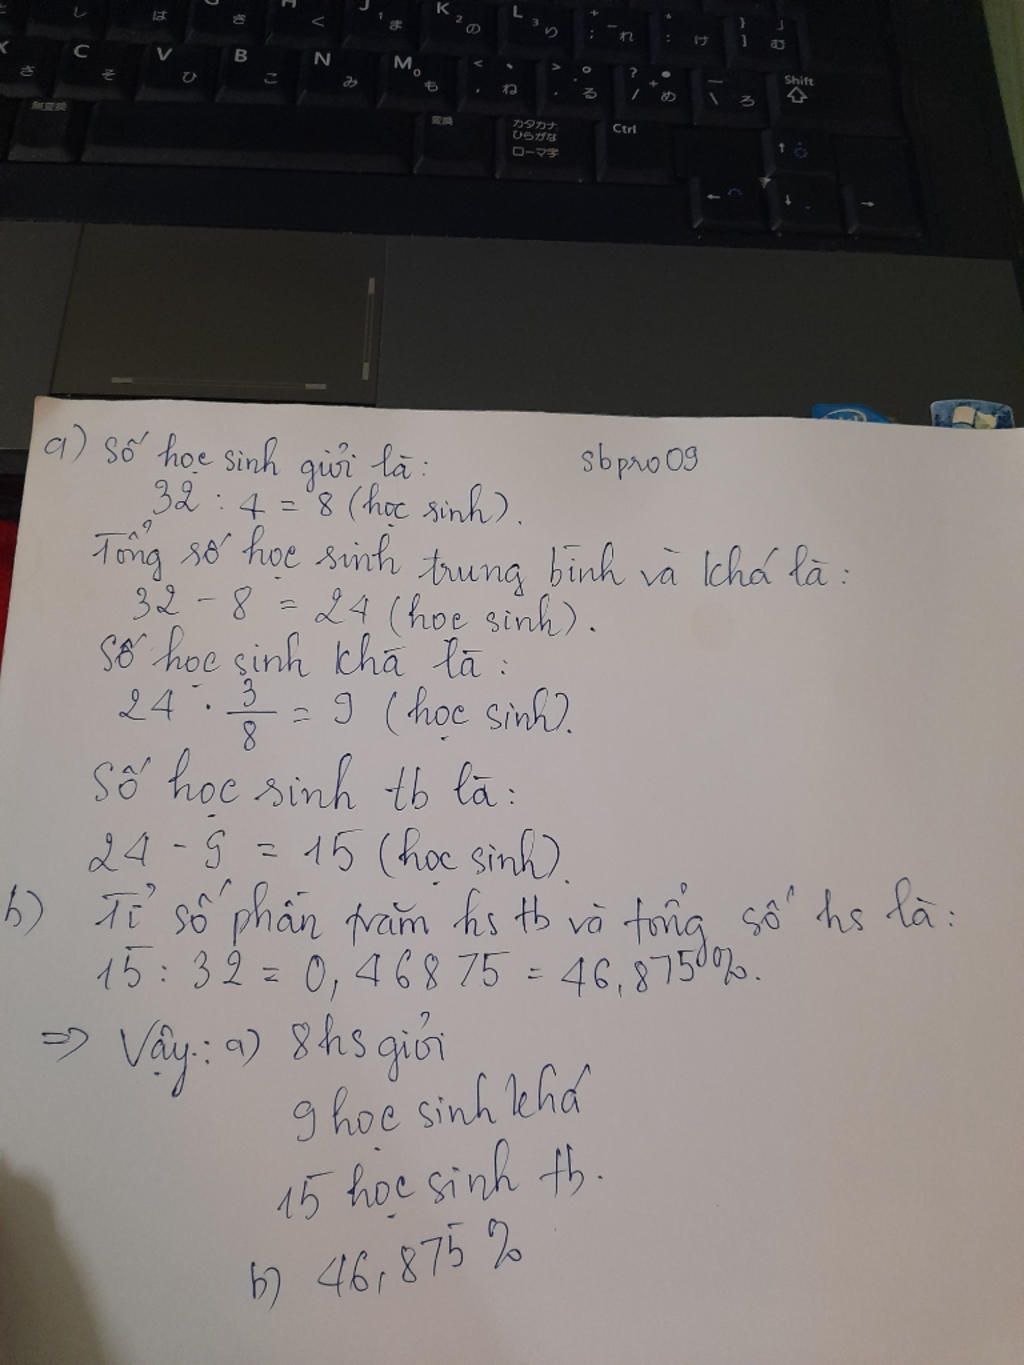 C そ
V ひ
B こ
N み
M 0 も
K 2 の
L 3 り
Shift
無変換
変換
カタカナ
ひらがな
ローマ字
Ctrl
a) Số học sinh giỏi là:
sbpro09
32 : 4 = 8 (học sinh).
Tổng số học sinh trung bình và khá là:
32 - 8 = 24 (học sinh).
Số học sinh khá là:
24 . 3/8 = 9 (học sinh).
Số học sinh tb là:
24 - 9 = 15 (học sinh).
b) Tỉ số phần trăm hs tb và tổng số hs là:
15 : 32 = 0,46875 = 46,875%.
=> Vậy: a) 8hs giỏi
9 học sinh khá
15 học sinh tb.
b) 46,875%